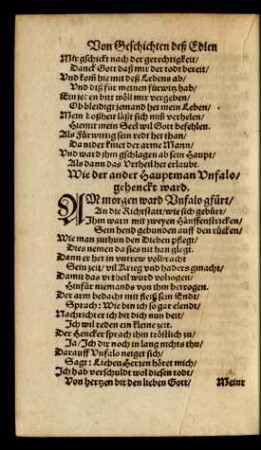 Von Geschichten deß Edlen
Mir gschickt nach der gerechtigkeit/
Danck Gott daß mir der todt bereit/
Vnd kom̃ hie mit deß Lebens ab/
Vnd diß für meinen fürwitz hab/
Ein jeden bitt wöll mir vergeben/
Ob bleidigt jemand her mein Leben/
Mein boßheit läßt sich nun̄ verhelen/
Hiemit mein Seel wil Gott befehlen.
Als Fürwittig sein redt her than/
Da nider kniet der arme Mann/
Vnd ward ihm gschlagen ab sein Haupt/
Als dann das Vrtheil her erlaubt.
Wie der ander Hauptman Vnfalo/
gehenckt ward.
AM morgen ward Vnfalo gfürt/
An die Richtstatt/wie sich gebürt/
Ihm warn mit zweyen Hänffenstricken/
Sein hend gebunden auff den rücken/
Wie man zuthun den Dieben pflegt/
Dies nemen da sies nit han glegt.
Dann er het in vntrew volbracht
Sein zeit/ vil Krieg vnd haders gmacht/
Damit das vrtheil ward volzogen/
Hinfür niemands von ihm betrogen.
Der arm bedacht mit fleiß sein Endt/
Sprach: Wie bin ich so gar elendt/
Nachrichter ich bit dich nun beit/
Ich wil reden ein kleine zeit.
Der Hencker sprach ihm tröstlich zu/
Ja/ Ich dir noch in lang nichts thu/
Darauff Vnfalo neiget sich/
Sagt: Lieben Herren höret mich/
Ich hab verschuldt wol diesen todt/
Von hertzen bit den lieben Gott/ Meine